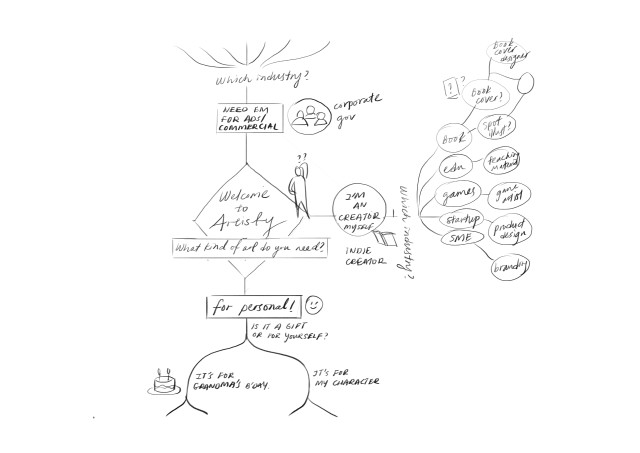 Which industry?
NEED EM
FOR ADS/
COMMERCIAL
corporate
gov
??
Welcome
to
Artisty
What kind of art do you need?
I'M
AN
CREATOR
MYSELF
INDIE
CREATOR
Which industry?
Book
cover
designer
? ?
Book
cover?
BOOK
spot
illust?
edu
teaching
material
games
game
asst
startup
SME
product
design
branding
for personal!
IS IT A GIFT
OR FOR YOURSELF?
IT'S FOR
GRANDMA'S B'DAY.
IT'S FOR
MY CHARACTER